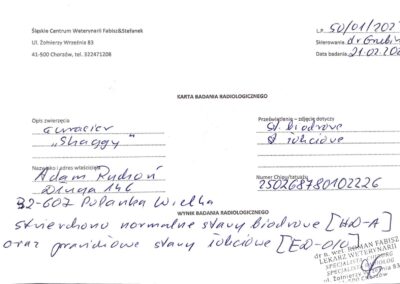 Śląskie Centrum Weterynarii Fabisz&Stefanek
Ul. Żołnierzy Września 83
41-500 Chorzów, tel. 322471208
L.P. 50/01/202
Skierowanie. dr
Data badania. 21.02.202
KARTA BADANIA RADIOLOGICZNEGO
Opis zwierzęcia
"Shaggy"
Prześwietlenie – zdjęcie dotyczy
st. biodrowe
st. łokciowe
Nazwisko i adres właściciela
Adam
Długa 146
32-607 Polanka Wielka
Numer Chipu/tatuażu
250268780102226
WYNIK BADANIA RADIOLOGICZNEGO
stwierdzono normalne stawy biodrowe [HD-A]
oraz prawidłowe stawy łokciowe [ED-0/0]
dr n. wet. ROMAN FABISZ
LEKARZ WETERYNARII
SPECJALISTA
SPECJALISTA RADIOLOG
ul. Żołnierzy Września 83